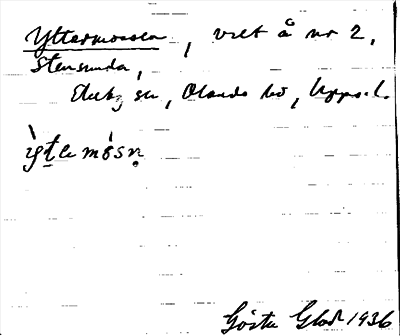 Yttermossen, vret å nr 2,
Stensunda,
Ekeby sn, Olands hd, Upps. l.
ỳt̲e mòsṇ
Gösta Glad 1936